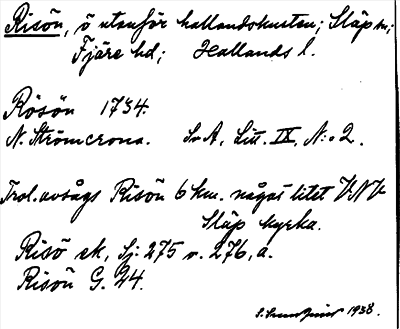 Risön, ö utanför hallandskusten; Släp sn;
Fjäre hd; Hallands l.
Rösön 1734.
N. Strömcrona. SvA, Litt. IX, N:o 2.
Trol. avsågs Risön 6 km. något litet VNV
Släp kyrka.
Risö sk, Sj: 275 v. 276, a.
Risön G. 44.
1938.